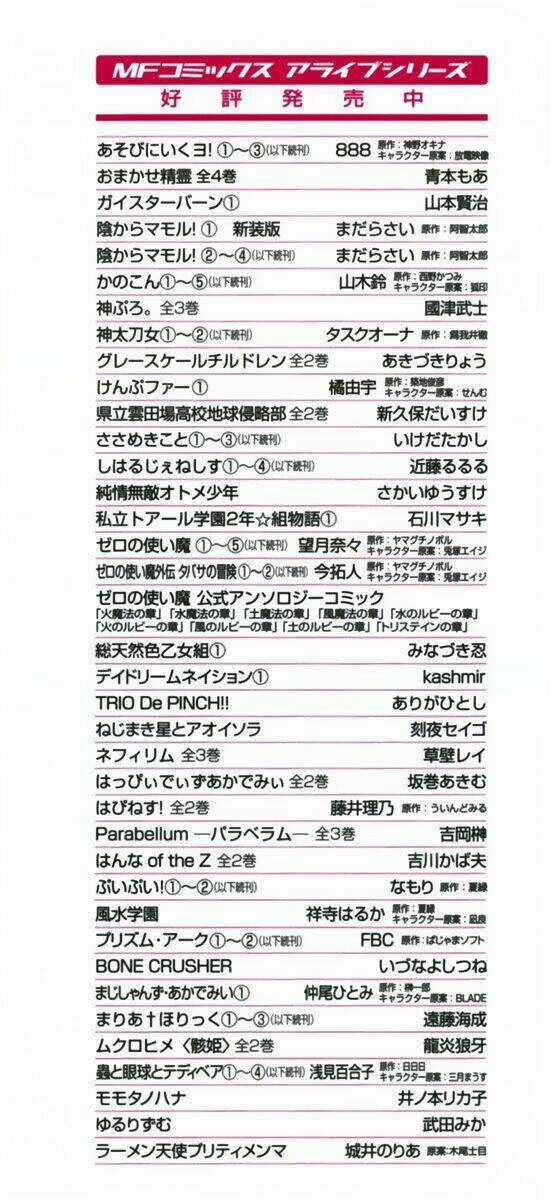 MFコミックス アライブシリーズ
好評発売中
あそびにいくヨ! ①〜③(以下続刊) 888 原作:神野オキナ キャラクター原案:放電映像
おまかせ精霊 全4巻 青本もあ
ガイスターバーン① 山本賢治
陰からマモル! ① 新装版 まだらさい 原作:阿智太郎
陰からマモル! ②〜④(以下続刊) まだらさい 原作:阿智太郎
かのこん①〜⑤(以下続刊) 山木鈴 原作:西野かつみ キャラクター原案:狐印
神ぷろ。全3巻 國津武士
神太刀女①〜②(以下続刊) タスクオーナ 原作:爲我井徹
グレースケールチルドレン 全2巻 あきづきりょう
けんぷファー① 橘由宇 原作:築地俊彦 キャラクター原案:せんむ
県立雲田場高校地球侵略部 全2巻 新久保だいすけ
ささめきこと①〜③(以下続刊) いけだたかし
しはるじぇねしす①〜④(以下続刊) 近藤るるる
純情無敵オトメ少年 さかいゆうすけ
私立トアール学園2年☆組物語① 石川マサキ
ゼロの使い魔 ①〜⑤(以下続刊) 望月奈々 原作:ヤマグチノボル キャラクター原案:兎塚エイジ
ゼロの使い魔外伝 タバサの冒険①〜②(以下続刊) 今拓人 原作:ヤマグチノボル キャラクター原案:兎塚エイジ
ゼロの使い魔 公式アンソロジーコミック
「火魔法の章」「水魔法の章」「土魔法の章」「風魔法の章」「水のルビーの章」
「火のルビーの章」「風のルビーの章」「土のルビーの章」「トリステインの章」
総天然色乙女組① みなづき忍
デイドリームネイション① kashmir
TRIO De PINCH!! ありがひとし
ねじまき星とアオイソラ 刻夜セイゴ
ネフィリム 全3巻 草壁レイ
はっぴぃでぃずあかでみぃ 全2巻 坂巻あきむ
はぴねす! 全2巻 藤井理乃 原作:ういんどみる
Parabellum ―パラベラム― 全3巻 吉岡榊
はんな of the Z 全2巻 吉川かば夫
ぷいぷい!①〜②(以下続刊) なもり 原作:夏緑
風水学園 祥寺はるか 原作:夏緑 キャラクター原案:凪良
プリズム・アーク①〜②(以下続刊) FBC 原作:ぱじゃまソフト
BONE CRUSHER いづなよしつね
まじしゃんず・あかでみい① 仲尾ひとみ 原作:榊一郎 キャラクター原案:BLADE
まりあ†ほりっく①〜③(以下続刊) 遠藤海成
ムクロヒメ〈骸姫〉全2巻 龍炎狼牙
蟲と眼球とテディベア①〜④(以下続刊) 浅見百合子 原作:日日日 キャラクター原案:三月まうす
モモタノハナ 井ノ本リカ子
ゆるりずむ 武田みか
ラーメン天使プリティメンマ 城井のりあ 原案:木尾士目